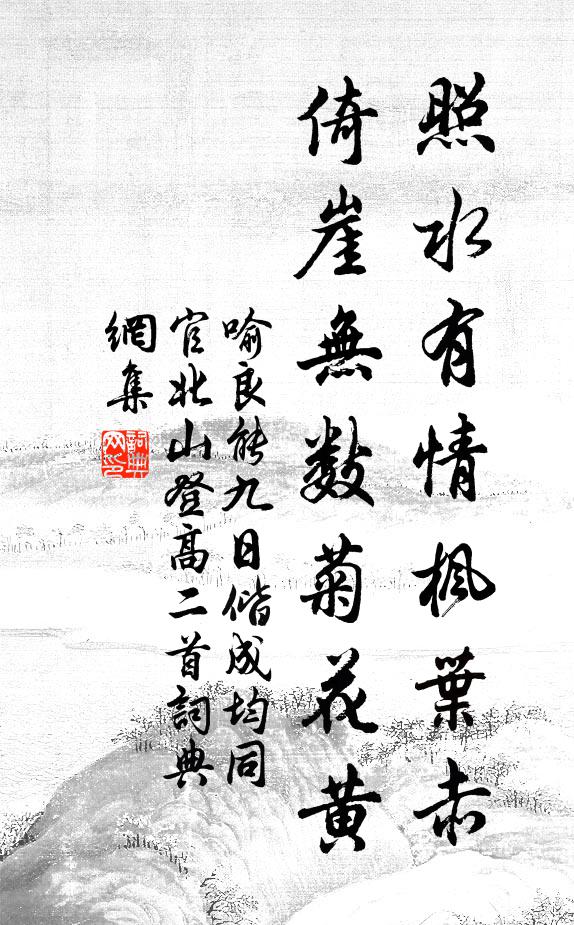 照水有情楓葉赤
倚崖無數菊花黃
喻良能九日偕成均同
官北山登高二首詞典
網集
詞典
网印